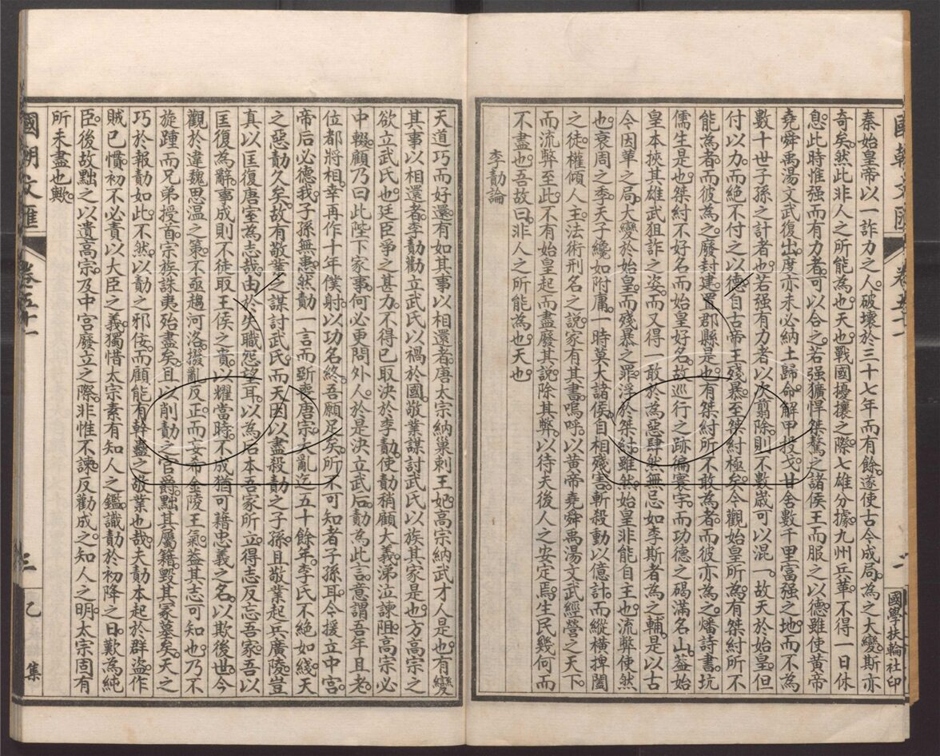 國朝文匯
卷五十一
國學扶輪社印
秦始皇帝以一詐力之人破壞於三十七年而有餘遂使古今成局為之大變斯亦
奇矣然此非人之所能為也天也戰國擾攘之際七雄分據九州兵革不得一日休
息此時惟强而有力者可以合之若强獷悍桀驁之諸侯王而服之以德雖使黃帝
堯舜禹湯文武復出度亦未必納土歸命解甲投戈甘舍數千里富强之地而不為
數十世子孫之計者也若强有力者以次翦除則不數歲可以混一故天於始皇但
付以力而絕不付之以德自古帝王殘暴至桀紂極矣今觀始皇所為有桀紂所不
能為者而彼為之廢封建置郡縣是也有桀紂所不敢為者而彼亦為之燔詩書坑
儒生是也桀紂不好名而始皇好名故巡行之跡編寰宇而功德之碣滿名山蓋始
皇本挾其雄武狙詐之姿而又得一敢於為惡肆然無忌如李斯者為之輔是以古
今因革之局大變於始皇而殘暴之罪浮於桀紂雖然始皇非能自王也流弊使然
也衰周之季天子纔如附庸一時莫大諸侯自相殘害斬殺動以億計而縱橫捭闔
之徒權傾人主法術刑名之說家有其書嗚呼以黃帝堯舜禹湯文武經營之天下
而流弊至此不有始皇起而盡廢其說除其弊以待天後人之安定焉生民幾何而
不盡也吾故曰非人之所能為也天也
李勣論
天道巧而好還有如其事以相還者唐太宗納巢剌王妃高宗納武才人是也有變
其事以相還者李勣勸立武氏以禍於國敬業謀討武氏以族其家是也方高宗之
欲立武氏也廷臣爭之甚力不得已取決於李勣使勣稍顧大義弟泣諫阻高宗必
中輟顧乃曰此陛下家事何必更問外人於是決立武后勣為此言意謂吾年且老
位都將相幸再作十年僕射以功名終吾願足矣所不可知者子孫耳今援立中宮
帝后必德我子孫無患然勣一言而斲喪唐宗大亂迄五十餘年李氏不絕如綫天
之惡勣久矣故有敬業之謀討武氏而天因以盡殺勣之子孫且敬業起兵廣陵豈
真以匡復唐室為志哉由於失職怨望耳以為吾本吾家所立得志反忘吾家吾以
匡復為辭事成則不徒取王侯之貴以耀當時不成猶可藉忠義之名以欺後世今
觀於違魏思溫之策不亟趨河洛撥亂反正而妄希金陵王氣蓋其志可知也乃不
旋踵而兄弟授首宗族誅夷殆盡矣且以削勣之官爵黜其屬籍毀其冢墓矣天之
巧於報勣如此不然以勣之邪佞而顧能有幹蠱之敬業也哉夫勣本起於群盜作
賊已慣初不必責以大臣之義獨惜太宗素有知人之鑑識勣於初降之日歎為純
臣後故黜之以遺高宗及中宮廢立之際非惟不諫反勸成之知人之明太宗固有
所未盡也歟
國朝文匯
卷五十一
三
乙
集